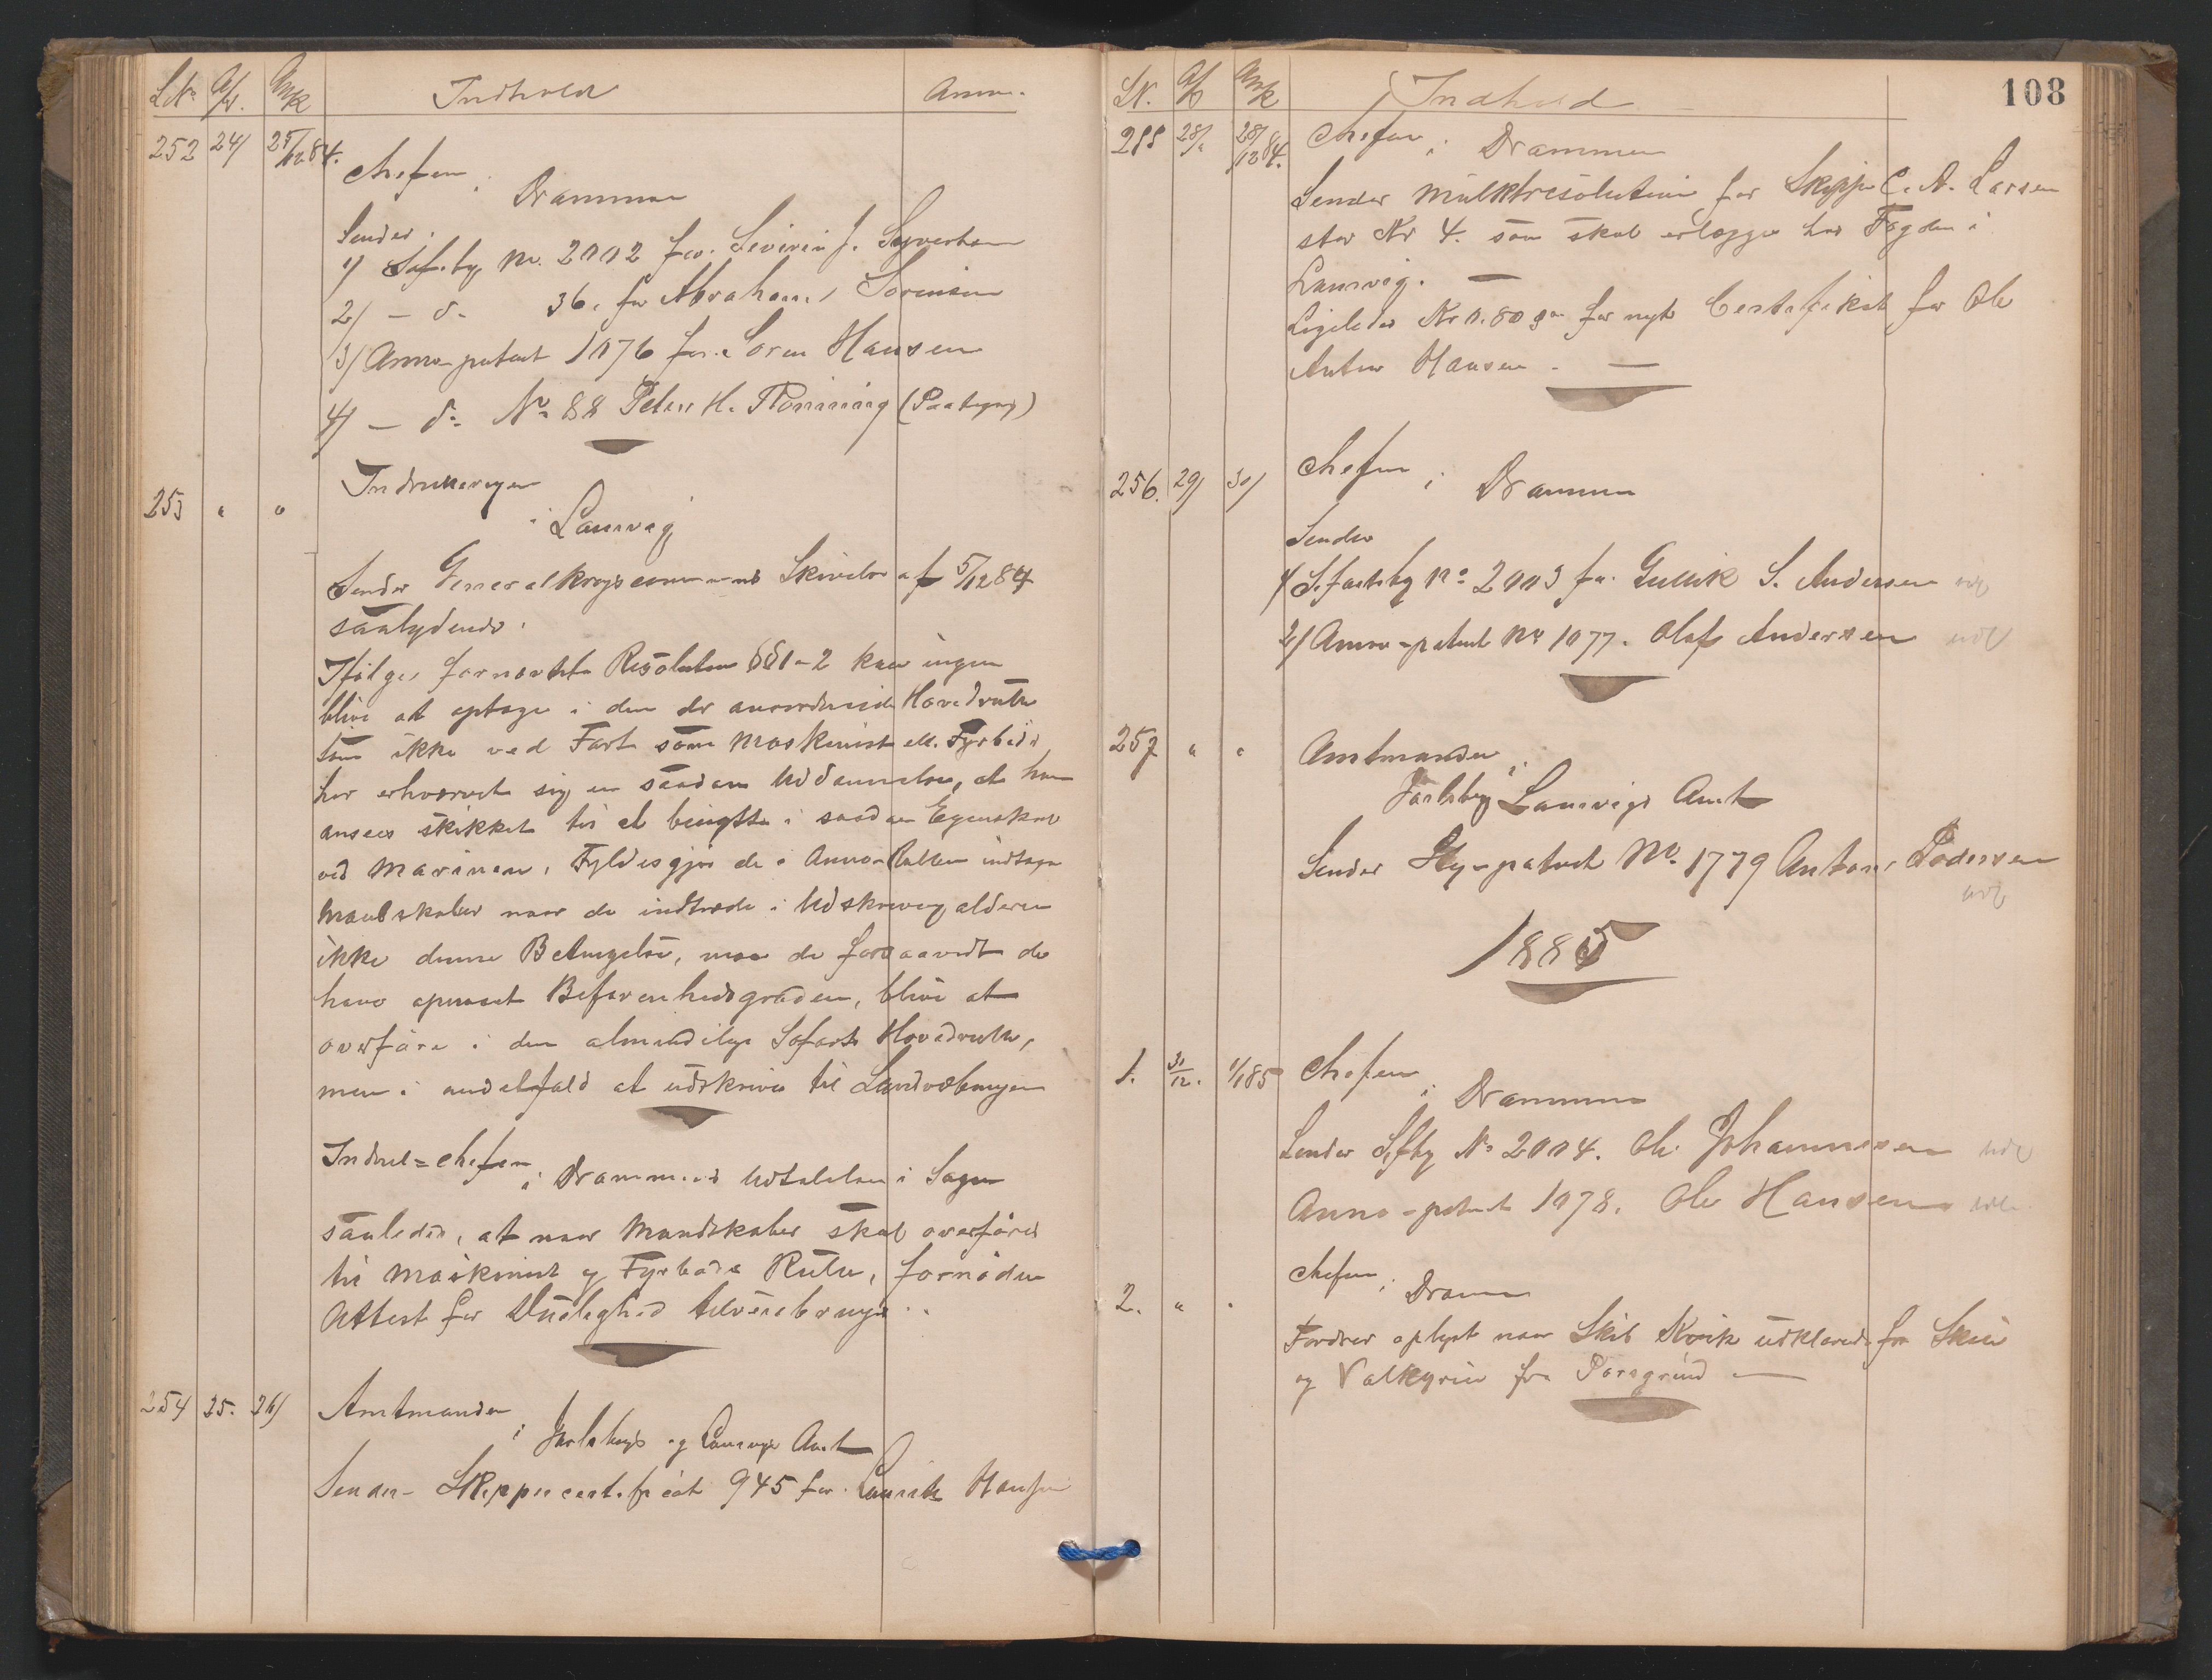 LNo Afs. Ank Indhold Anm.
252 24/ 25/12 84. Chefen i Drammen
Sender:
1/ Søfsbg No. 2002 for Severin J. Syvertsen
2/ – do 36. for Abraham Sørensen
3/ Anno-patent 1076 for Søren Hansen
4/ – do No 88 Peter H. Rønning (Paategng)
253 " " Indrulleringen
i Laurvig
Sender Generalkrigscommands Skrivelse af 5/12 84
saalydende:
Ifølge fornævnte Resolution §§1-2 kan ingen
blive at optage i den der anordnede Hovedrulle
som ikke ved Fart som Maskinist ell. Fyrbøder
har erhvervet sig en saadan Uddannelse, at han
ansees skikket til at benyttes i saadan Egenskab
ved Marinen. Fyldesgjør de i Anno-Rullen indtagne
Mandskaber naar de indtræde i Udskrivngalderen
ikke denne Betingelse, maa de forsaavidt de
have opnaaet Befarenhedsgraden, blive at
overføre i den almindelige Søfarts Hovedrulle,
men i andetfald at udskrive til Landvæbningen
Indrul=chefen i Drammens Udtalelse i Sagen
saaledes, at naar Mandskaber skal overføres
til Maskinist og Fyrbøder Rulle, fornøden
Attest for Duelighed tilveiebringes.
254 25. 26/ Amtmanden
i Jarlsbergs og Laurvigs Amt
Sender Skippercertificat 945 for Laurits Hansen
108
LN. Afs Ank Indhold
255 28/" 28/12 84. Chefen i Drammen
Sender Mulktresolution for Skipper C. A. Larsen
stor Kr 4. som skal erlægges hos Fogden i
Laurvig. —
Ligeledes Kr 0.80 øre for nyt Certifikat for Ole
Anton Hansen. —
256. 29/ 30/ Chefen i Drammen
Sender
1/ Søfartsbg No 2003 for Gullik S. Andersen udl
2/ Anno-patent No 1077. Olaf Andersen udl
257 " " Amtmanden i
Jarlsberg Laurvigs Amt
Sender Sty-patent No. 1779 Anton Pedersen
udl
1885
1. 31/12. 1/1 85 Chefen i Drammen
Sender Sfbg No 2004. Ole Johannesen udl
Anno-patent 1078. Ole Hansen udl.
2. " " Chefen i Dramm
Fordrer oplyst naar Skib Kvik udklarede fra Skien
og Valkyrien fra Porsgrund —